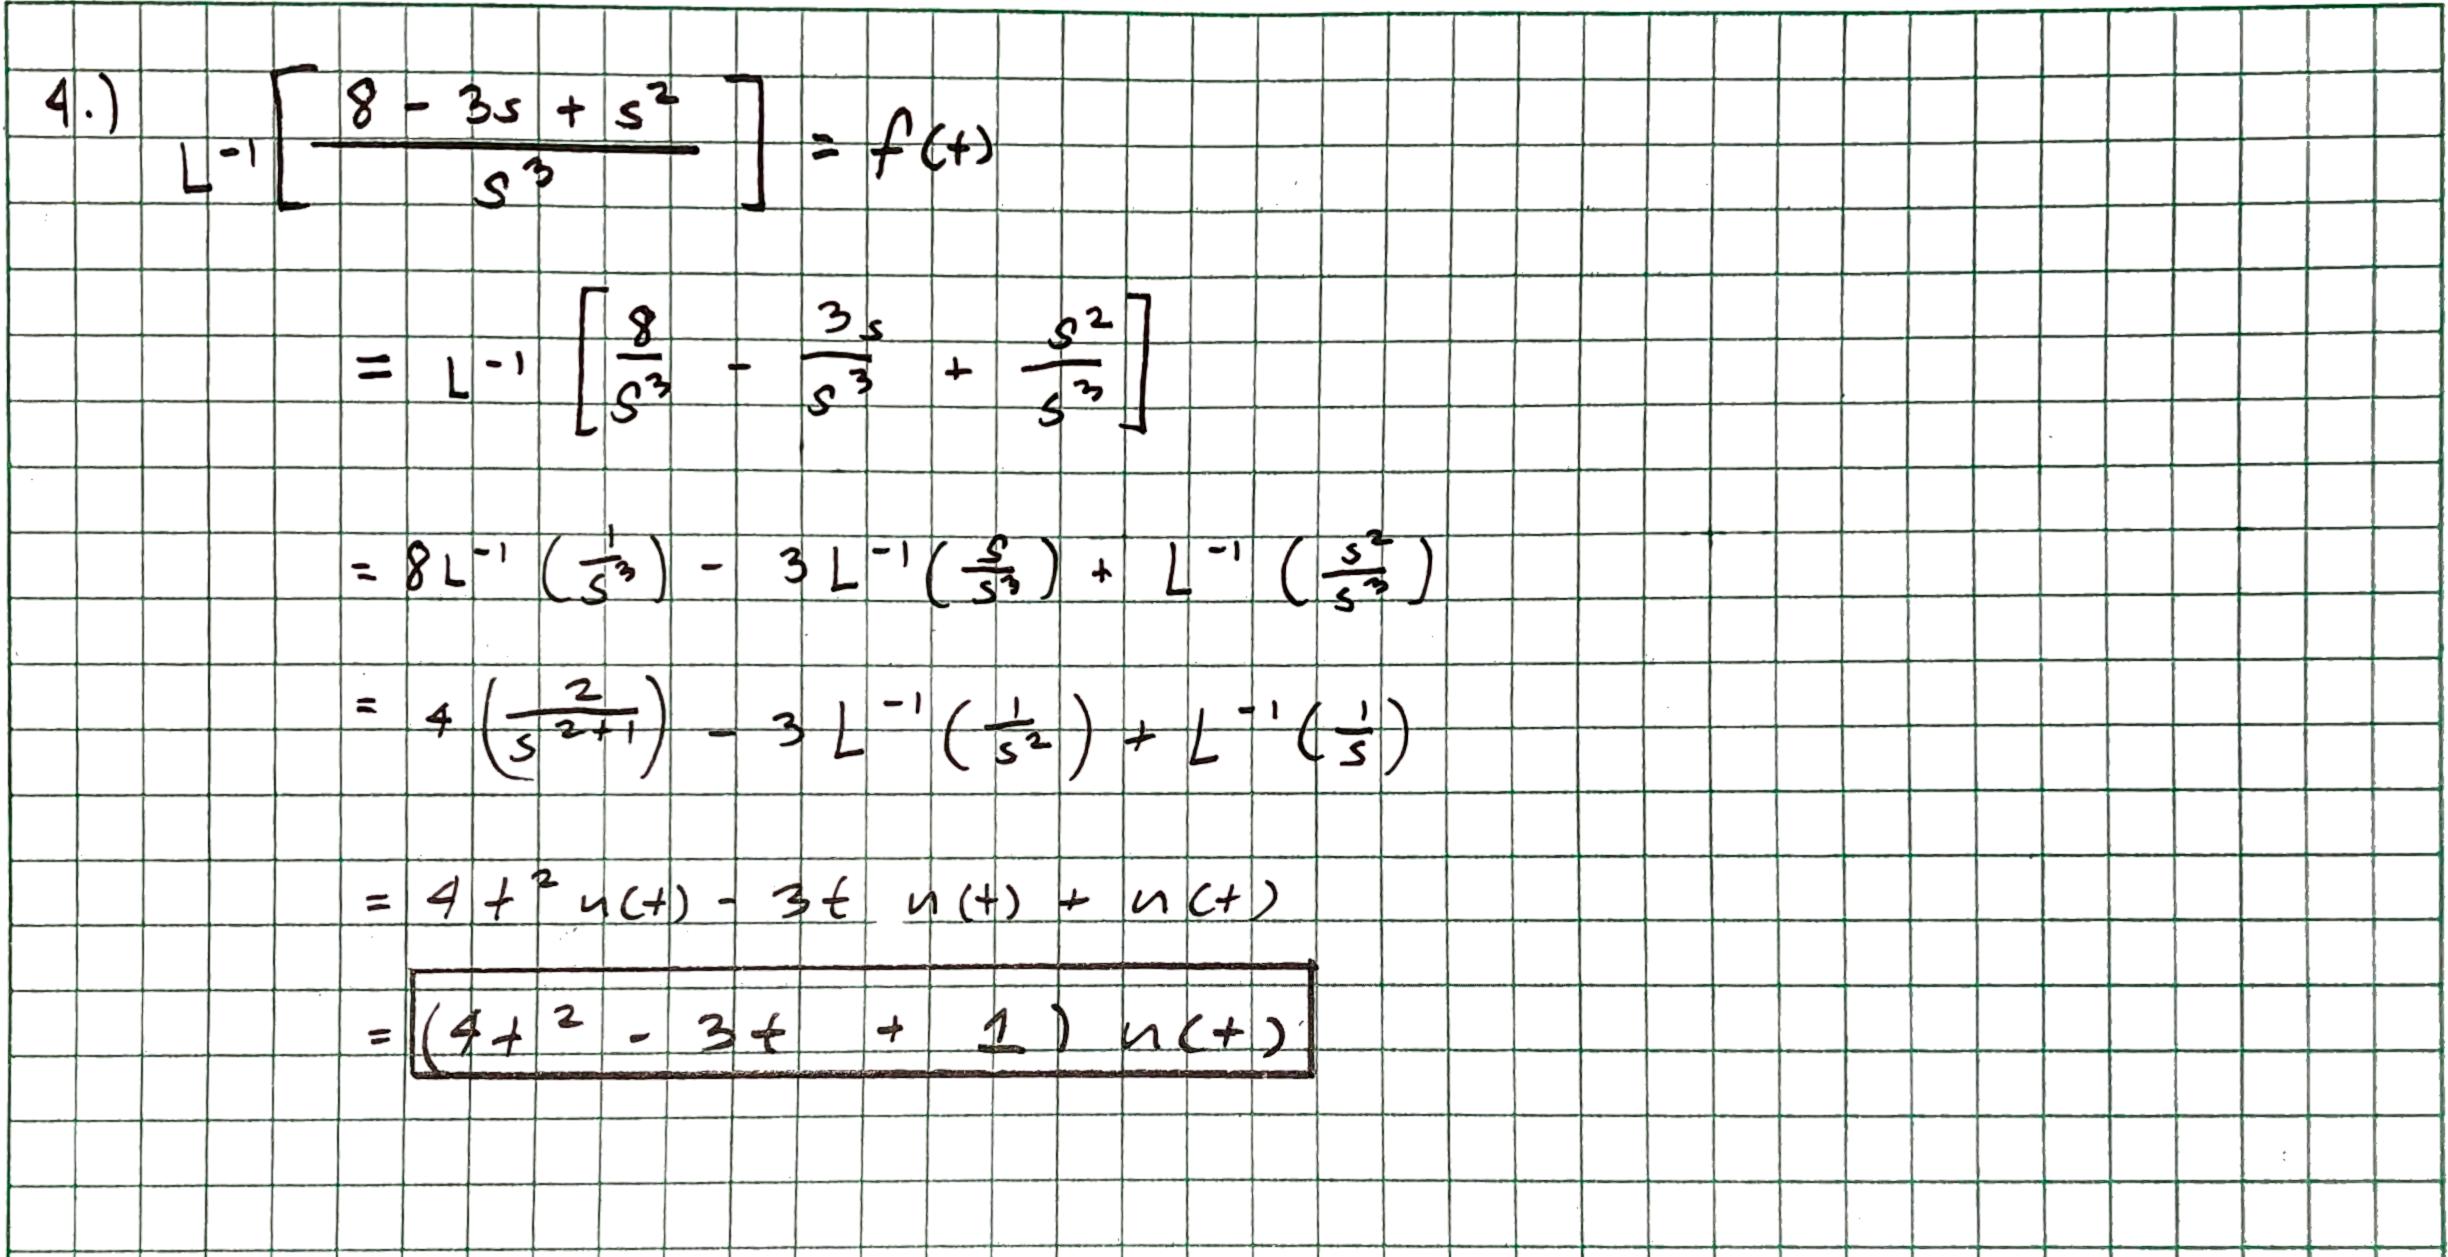 4.) L⁻¹[(8 - 3s + s²)/s³] = f(t)
= L⁻¹ [8/s³ - 3s/s³ + s²/s³]
= 8L⁻¹ (1/s³) - 3L⁻¹(s/s³) + L⁻¹ (s²/s³)
= 4 (2/s²⁺¹) - 3L⁻¹ (1/s²) + L⁻¹(1/s)
= 4t² u(t) - 3t u(t) + u(t)
= (4t² - 3t + 1) u(t)